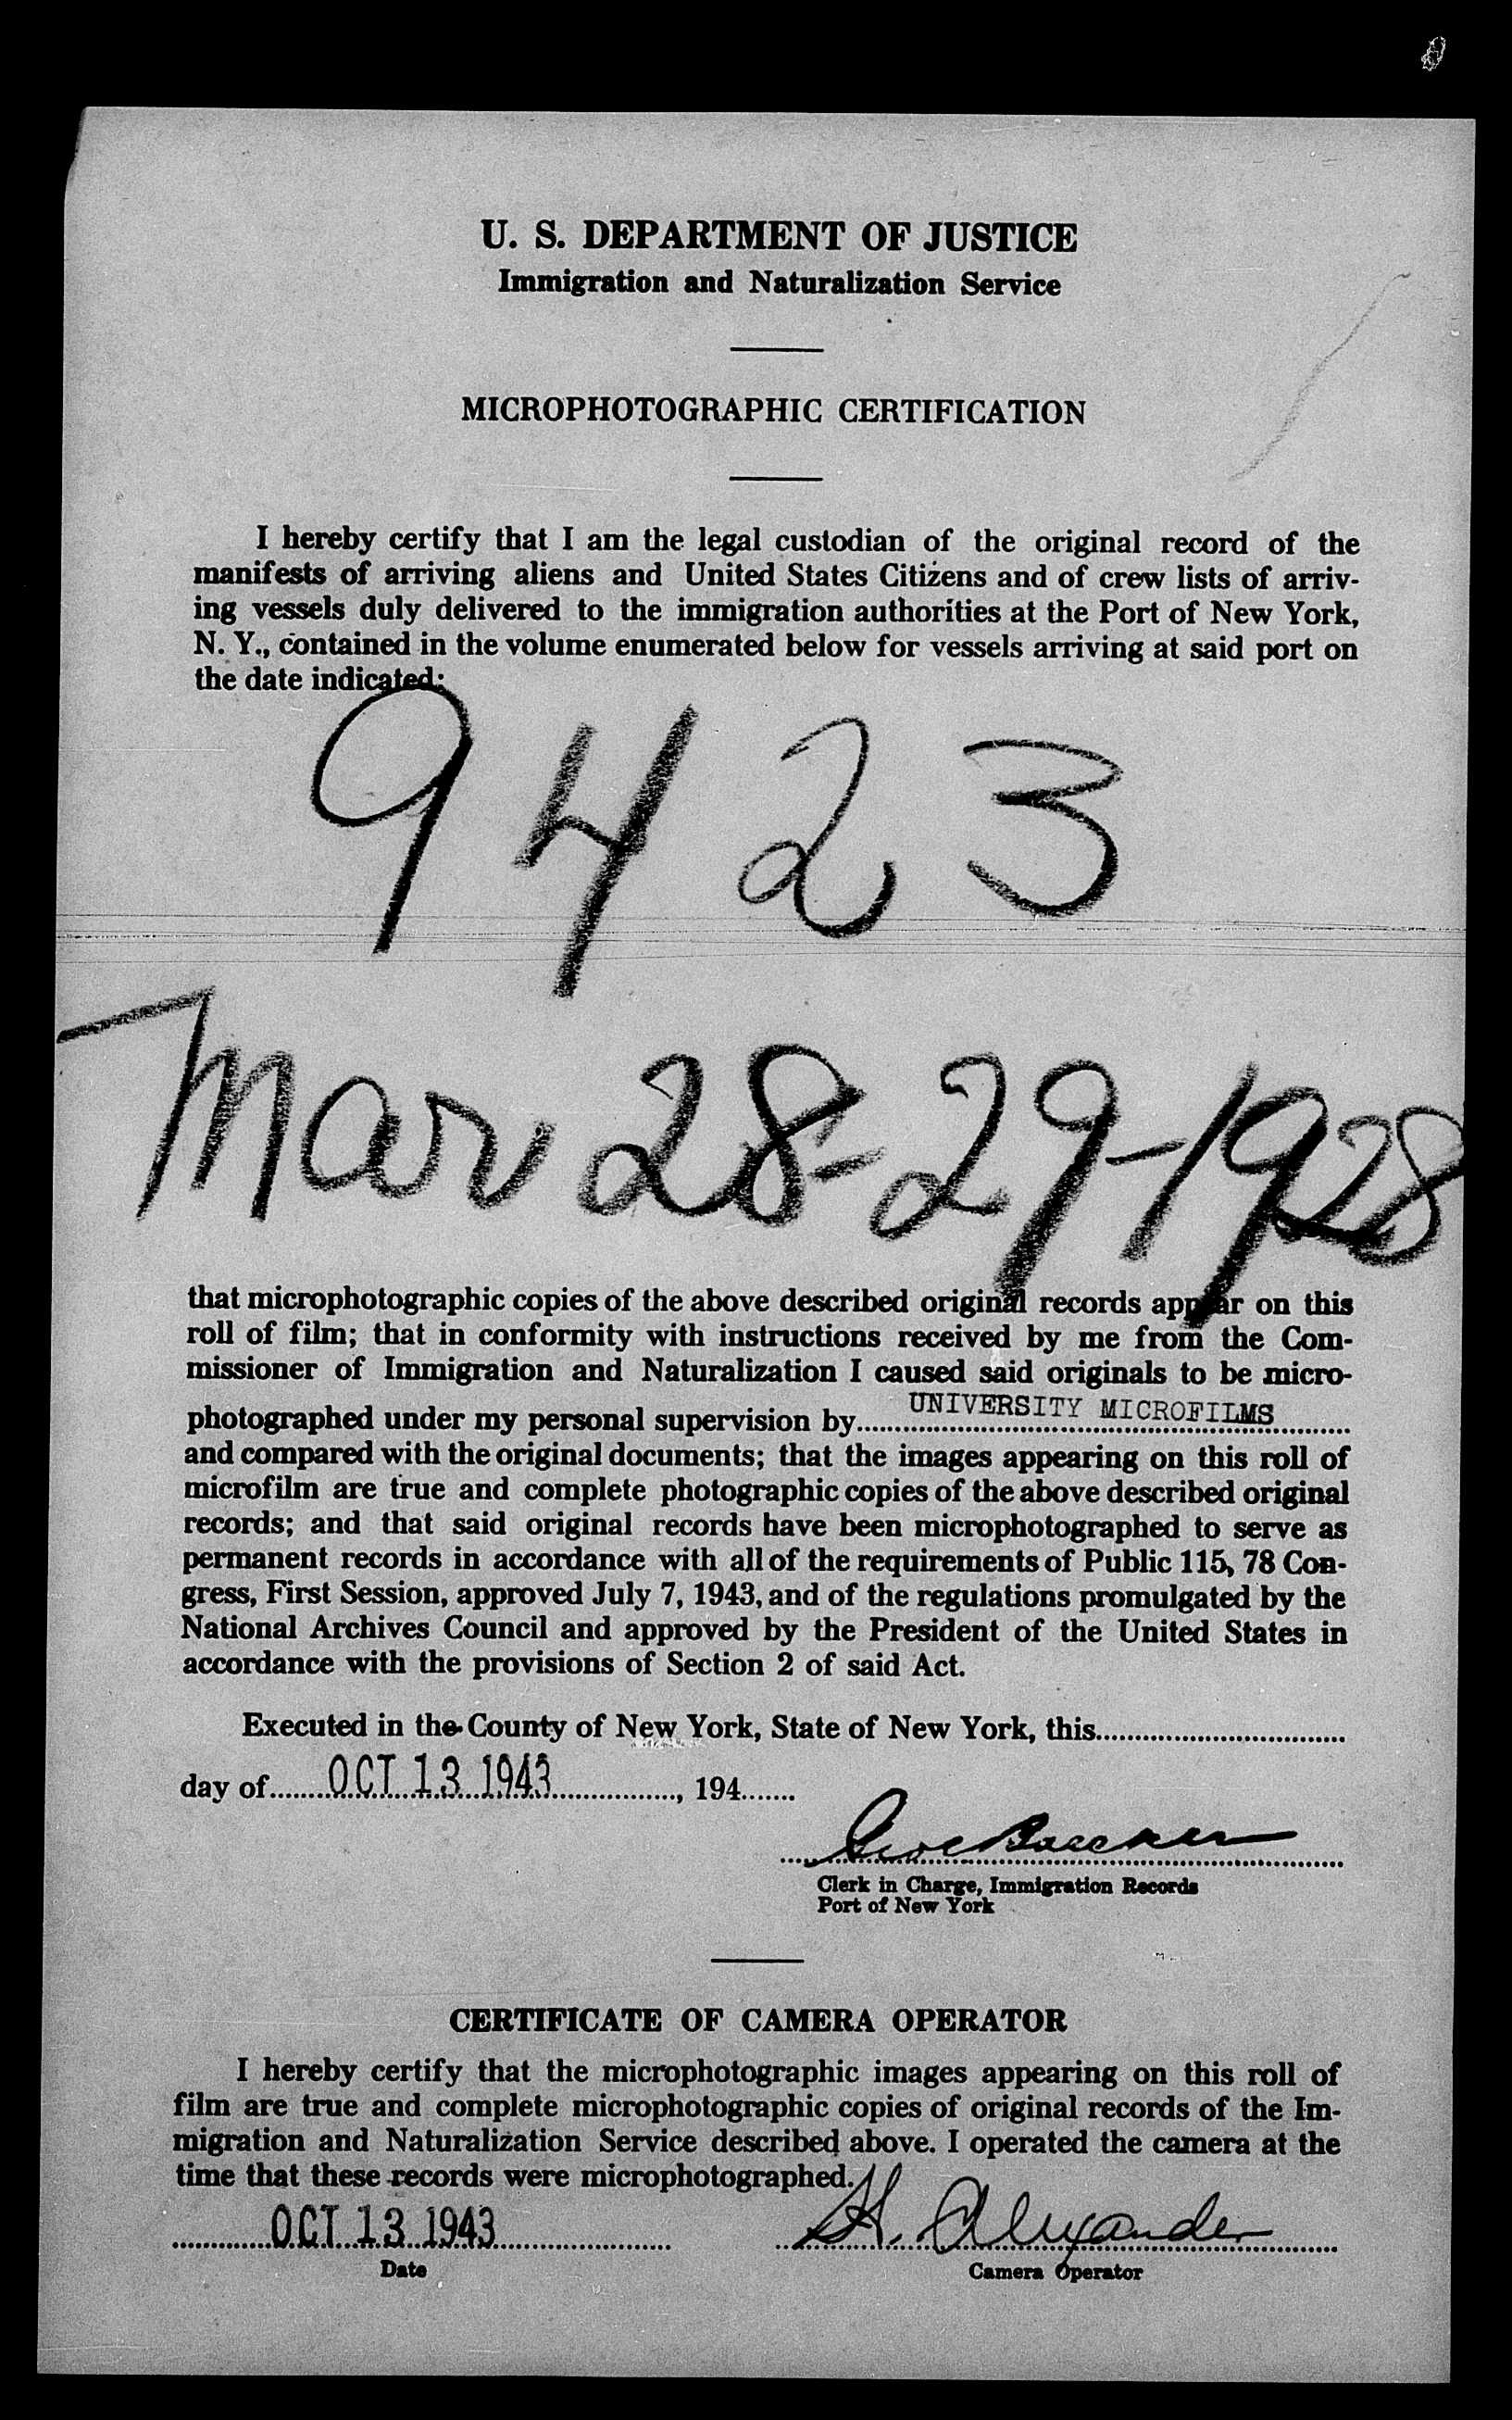 U. S. DEPARTMENT OF JUSTICE
Immigration and Naturalization Service
MICROPHOTOGRAPHIC CERTIFICATION
I hereby certify that I am the legal custodian of the original record of the
manifests of arriving aliens and United States Citizens and of crew lists of arriv-
ing vessels duly delivered to the immigration authorities at the Port of New York,
N. Y., contained in the volume enumerated below for vessels arriving at said port on
the date indicated:
9423
Mar 28-29-1928
that microphotographic copies of the above described original records appear on this
roll of film; that in conformity with instructions received by me from the Com-
missioner of Immigration and Naturalization I caused said originals to be micro-
photographed under my personal supervision by UNIVERSITY MICROFILMS
and compared with the original documents; that the images appearing on this roll of
microfilm are true and complete photographic copies of the above described original
records; and that said original records have been microphotographed to serve as
permanent records in accordance with all of the requirements of Public 115, 78 Con-
gress, First Session, approved July 7, 1943, and of the regulations promulgated by the
National Archives Council and approved by the President of the United States in
accordance with the provisions of Section 2 of said Act.
Executed in the County of New York, State of New York, this
day of OCT 13 1943, 194
Clerk in Charge, Immigration Records
Port of New York
CERTIFICATE OF CAMERA OPERATOR
I hereby certify that the microphotographic images appearing on this roll of
film are true and complete microphotographic copies of original records of the Im-
migration and Naturalization Service described above. I operated the camera at the
time that these records were microphotographed.
OCT 13 1943 H. Alexander
Date Camera Operator